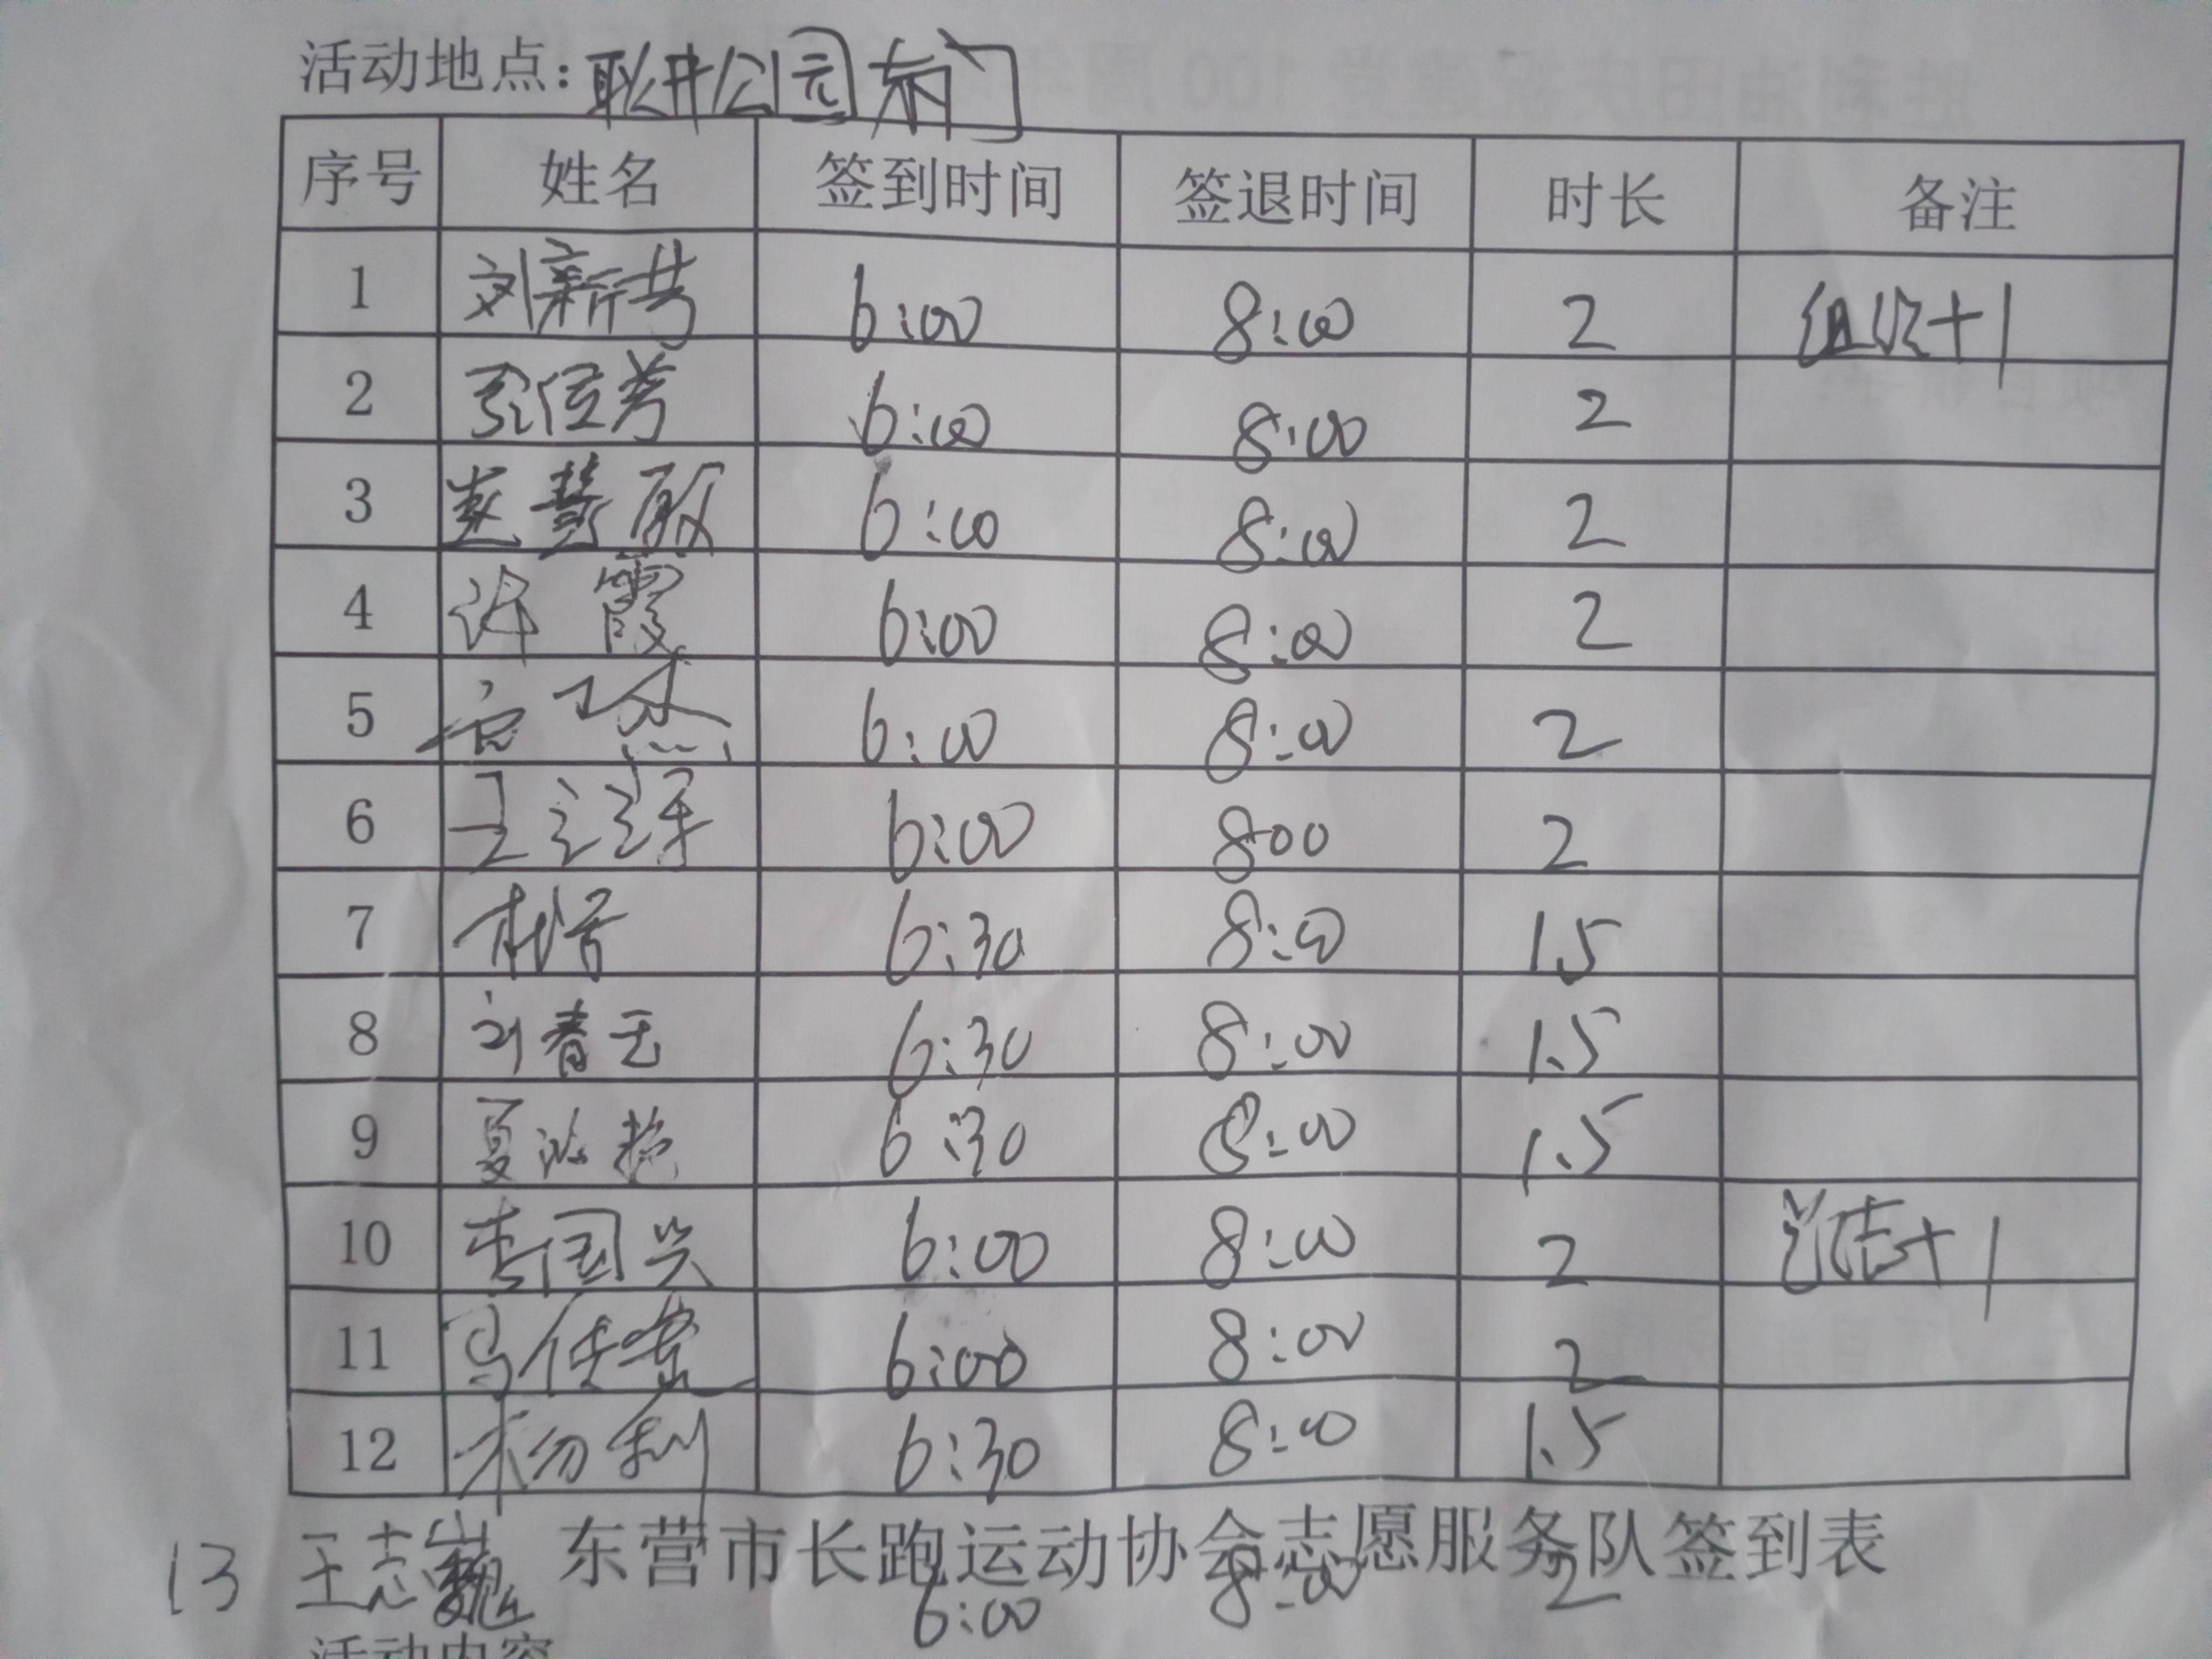 活动地点：耿井公园东门
序号 姓名 签到时间 签退时间 时长 备注
1 刘新 6:00 8:00 2 组织+1
2 6:00 8:00 2
3 赵慧敏 6:00 8:00 2
4 许霞 6:00 8:00 2
5 6:00 8:00 2
6 王 6:00 800 2
7 6:30 8:00 1.5
8 刘春玉 6:30 8:00 1.5
9 夏 艳 6:30 8:00 1.5
10 李国兴 6:00 8:00 2 总结+1
11 马 6:00 8:00 2
12 6:30 8:00 1.5
东营市长跑运动协会志愿服务队签到表
13 王志巍 6:00 8:00 2
活动内容